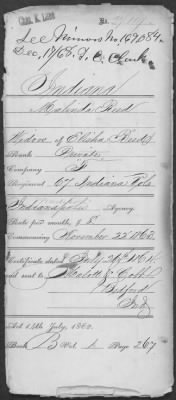 No.
See Minors No. 169,084.
Dec. 17/68.
Indiana
Malinda Reed
Widow of Elisha Reed
Rank Private
Company F
Regiment 67 Indiana Vols
Indianapolis Agency.
Rate per month, $8
Commencing November 22" 1862
Certificate dated July
and sent to
Bedford
Ind
Act 14th July, 1862.
Book B Vol. Page 267